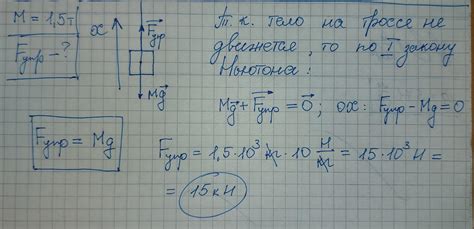 M = 1,5т
Fупр - ?
x
Fупр
Mg
Т.к. тело на троссе не
движется, то по I закону
Ньютона:
Mg + Fупр = 0 ; ox: Fупр - Mg = 0
Fупр = Mg
Fупр = 1,5·10³ кг · 10 Н/кг = 15·10³ Н =
= 15 кН